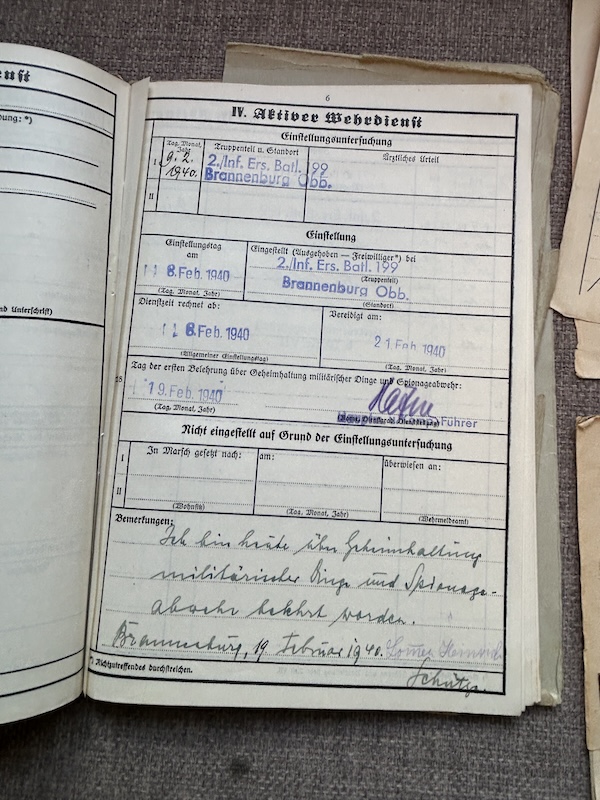 enst
bung: *)
nd Unterschrift)
6
IV. Aktiver Wehrdienst
Einstellungsuntersuchung
Tag, Monat, Jahr
Truppenteil u. Standort
Ärztliches Urteil
I
9. 2. 1940.
2./Inf. Ers. Batl. 199
Brannenburg Obb.
II
Einstellung
Einstellungstag am
8. Feb. 1940
(Tag, Monat, Jahr)
Eingestellt (Ausgehoben — Freiwilliger*) bei
2./Inf. Ers. Batl. 199
(Truppenteil)
Brannenburg Obb.
(Standort)
Dienstzeit rechnet ab:
8. Feb. 1940
(Allgemeiner Einstellungstag)
Vereidigt am:
21. Feb. 1940
(Tag, Monat, Jahr)
Tag der ersten Belehrung über Geheimhaltung militärischer Dinge und Spionageabwehr:
18
19. Feb. 1940
(Tag, Monat, Jahr)
Führer
Nicht eingestellt auf Grund der Einstellungsuntersuchung
In Marsch gesetzt nach:
am:
überwiesen an:
I
II
(Wohnsitz)
(Tag, Monat, Jahr)
(Wehrmeldeamt)
Bemerkungen:
Ich bin heute über Geheimhaltung
militärischer Dinge und Spionage-
abwehr belehrt worden.
Brannenburg, 19. Februar 1940.
Schütze.
*) Nichtzutreffendes durchstreichen.